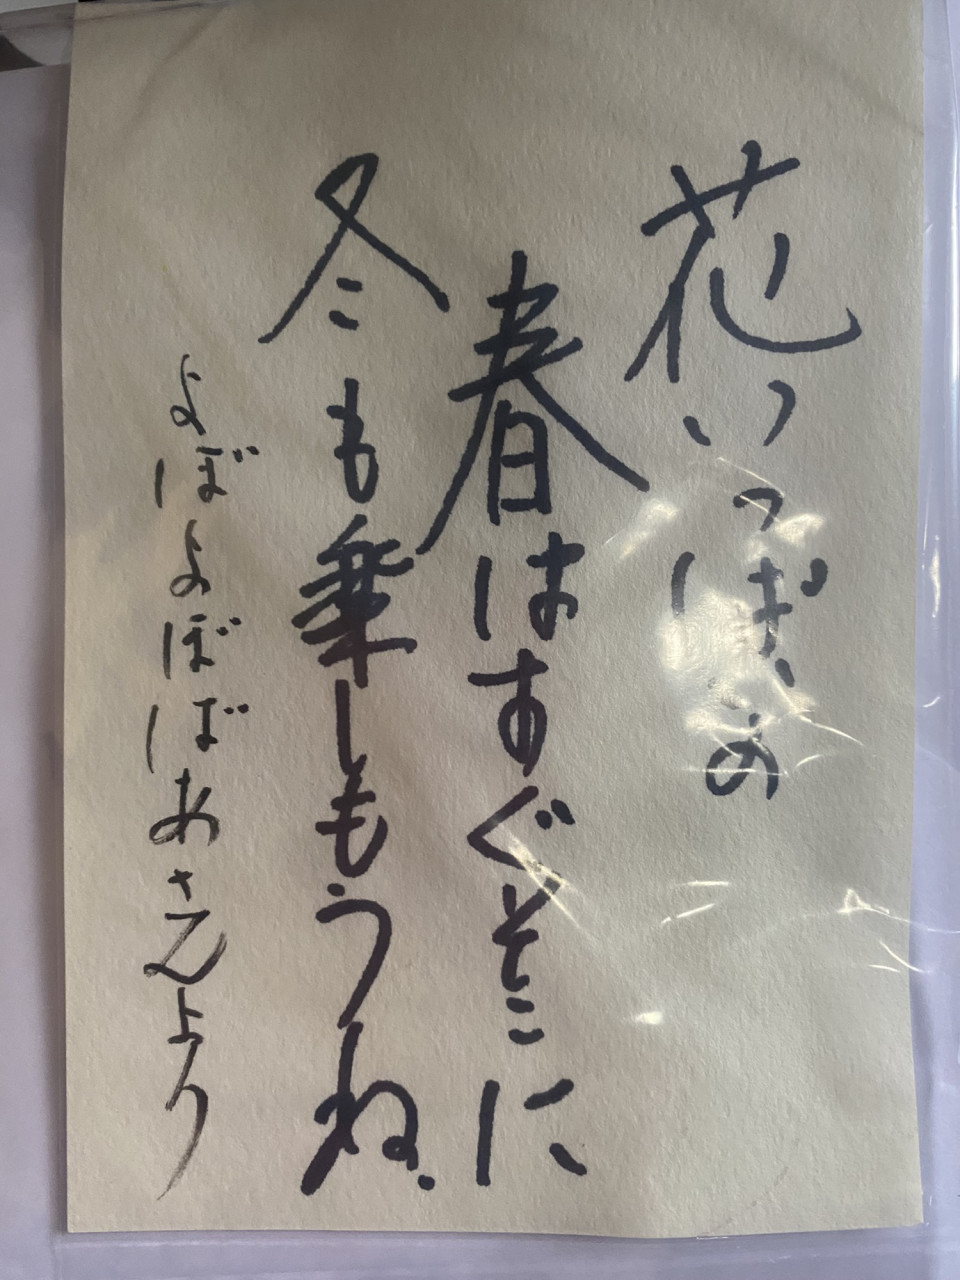 花いっぱいの
春はすぐそこに
冬も楽しもうね.
よぼよぼばあさんより